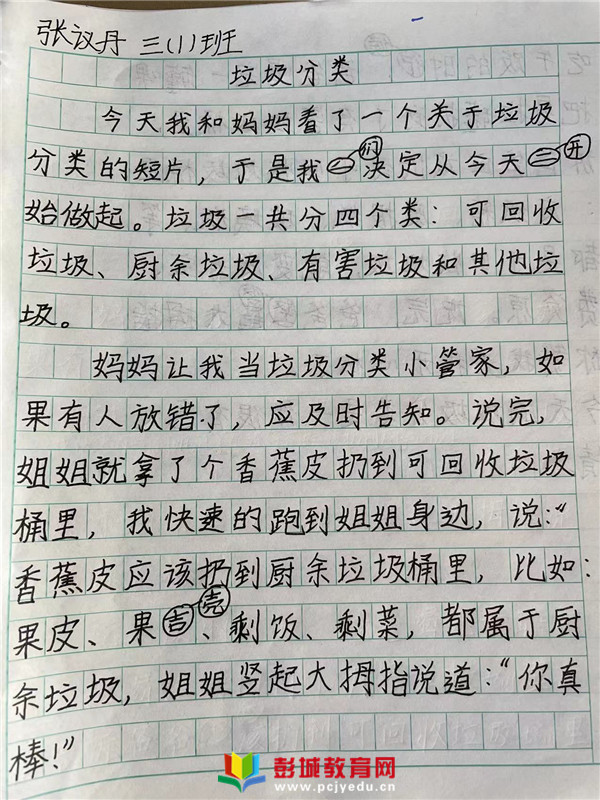 张议丹 三(1)班
垃圾分类
今天我和妈妈看了一个关于垃圾
分类的短片，于是我们决定从今天开
始做起。垃圾一共分四个类：可回收
垃圾、厨余垃圾、有害垃圾和其他垃
圾。
妈妈让我当垃圾分类小管家，如
果有人放错了，应及时告知。说完，
姐姐就拿了个香蕉皮扔到可回收垃圾
桶里，我快速的跑到姐姐身边，说：“
香蕉皮应该扔到厨余垃圾桶里，比如：
果皮、果壳、剩饭、剩菜，都属于厨
余垃圾，姐姐竖起大拇指说道：“你真
棒！”
彭城教育网
www.pcjyedu.cn